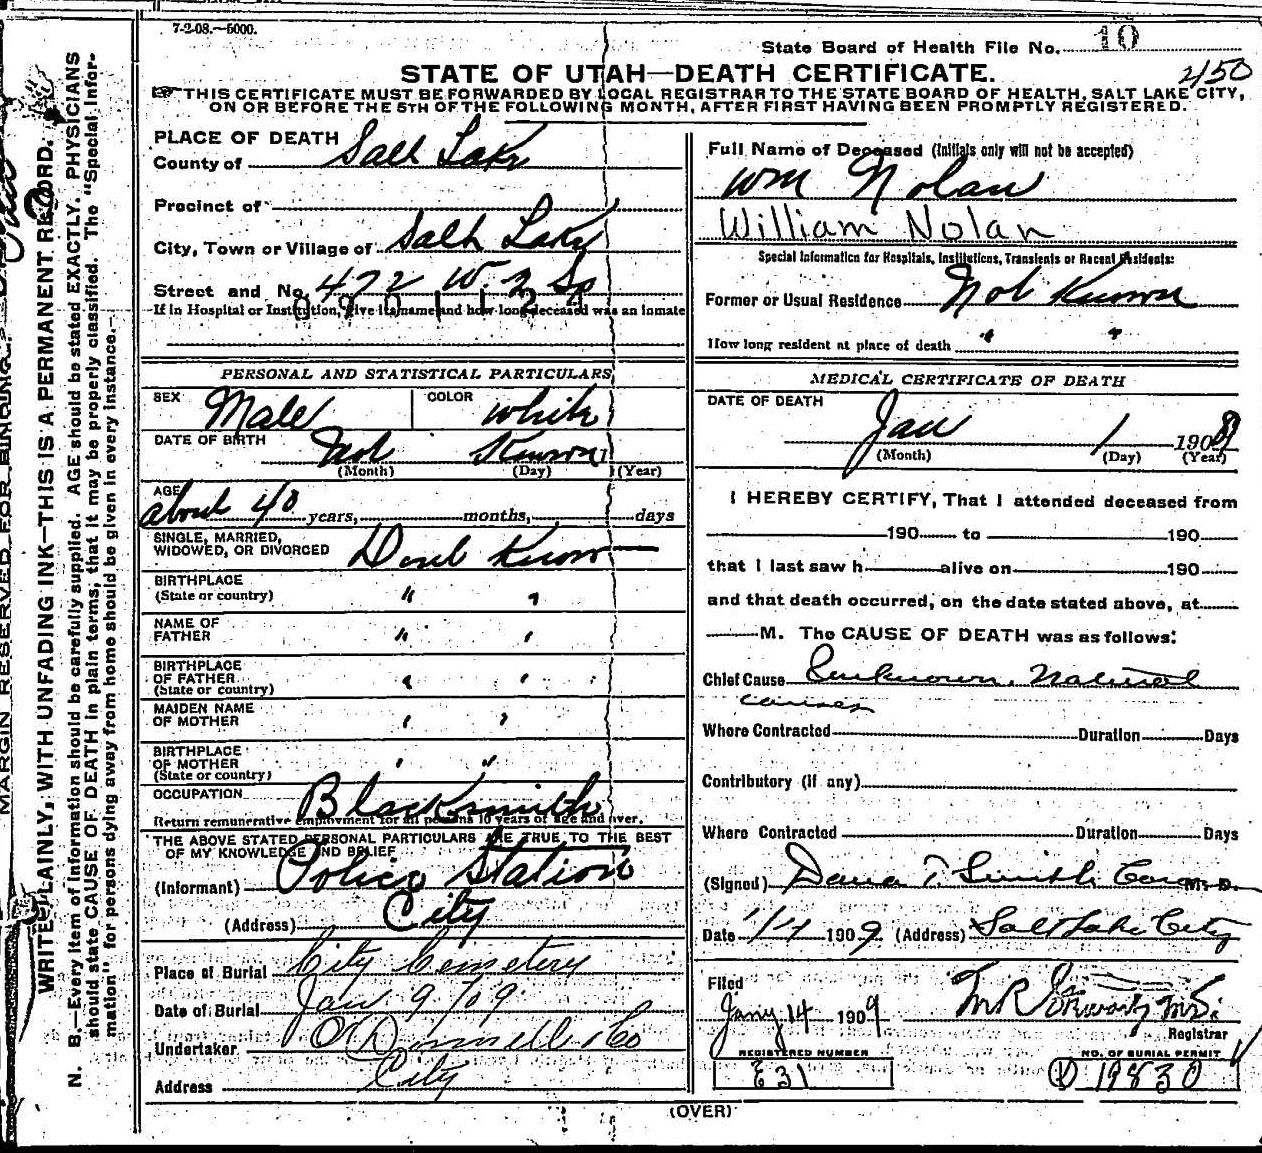 7-2-08.—5000.
State Board of Health File No. 10
450
STATE OF UTAH—DEATH CERTIFICATE.
THIS CERTIFICATE MUST BE FORWARDED BY LOCAL REGISTRAR TO THE STATE BOARD OF HEALTH, SALT LAKE CITY,
ON OR BEFORE THE 5TH OF THE FOLLOWING MONTH, AFTER FIRST HAVING BEEN PROMPTLY REGISTERED.
PLACE OF DEATH
County of Salt Lake
Precinct of
City, Town or Village of Salt Lake
Street and No. 472 W. 2 So
0901124
If in Hospital or Institution, give its name and how long deceased was an inmate
PERSONAL AND STATISTICAL PARTICULARS
SEX Male COLOR White
DATE OF BIRTH Not Known
(Month) (Day) (Year)
AGE about 40 years, months, days
SINGLE, MARRIED,
WIDOWED, OR DIVORCED Dont Know
BIRTHPLACE
(State or country) " "
NAME OF
FATHER " "
BIRTHPLACE
OF FATHER
(State or country) " "
MAIDEN NAME
OF MOTHER " "
BIRTHPLACE
OF MOTHER
(State or country) " "
OCCUPATION Blacksmith
Return remunerative employment for all persons 10 years of age and over.
THE ABOVE STATED PERSONAL PARTICULARS ARE TRUE TO THE BEST
OF MY KNOWLEDGE AND BELIEF
(Informant) Police Station
(Address) City
Place of Burial City Cemetery
Date of Burial Jan 9 '09
Undertaker O'Donnell & Co
Address City
Full Name of Deceased (Initials only will not be accepted)
Wm Nolan
William Nolan
Special Information for Hospitals, Institutions, Transients or Recent Residents:
Former or Usual Residence Not Known
How long resident at place of death " "
MEDICAL CERTIFICATE OF DEATH
DATE OF DEATH
Jan 1 1909
(Month) (Day) (Year)
I HEREBY CERTIFY, That I attended deceased from
190 to 190
that I last saw h alive on 190
and that death occurred, on the date stated above, at
M. The CAUSE OF DEATH was as follows:
Chief Cause Unknown. Natural
causes
Where Contracted Duration Days
Contributory (if any)
Where Contracted Duration Days
(Signed) Dana T. Smith Coroner M. D.
Date 1909 (Address) Salt Lake City
Filed
Jany 14 1909
Registrar
REGISTERED NUMBER
E31
NO. OF BURIAL PERMIT
19830
(OVER)
MARGIN RESERVED FOR BINDING.
WRITE PLAINLY, WITH UNFADING INK—THIS IS A PERMANENT RECORD.
N. B.—Every item of information should be carefully supplied. AGE should be stated EXACTLY. PHYSICIANS
should state CAUSE OF DEATH in plain terms, that it may be properly classified. The "Special Infor-
mation" for persons dying away from home should be given in every instance.